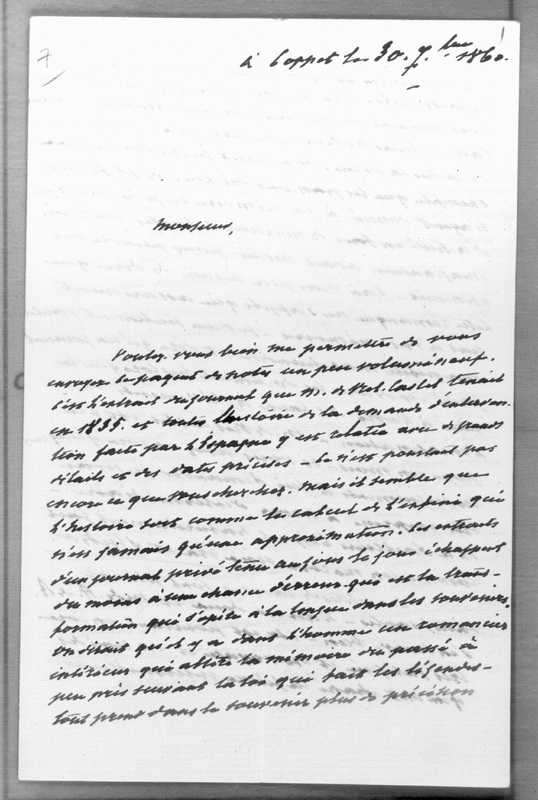 7
à Coppet le 30. 7.bre 1860.
Monsieur,
Voulez-vous bien me permettre de vous
envoyer le paquet de notes un peu volumineux.
C'est l'extrait du journal que M. de Vel Castel tenait
en 1835. et toute l'histoire de la demande d'interven-
tion faite par l'Espagne y est relatée avec de grands
détails et des dates précises - Ce n'est pourtant pas
encore ce que vous cherchez. Mais il semble que
l'histoire soit comme le calcul de l'infini qui
n'est jamais qu'une approximation. Les extraits
d'un journal privé tenu au jour le jour échappent
du moins à une chance d'erreur qui est la trans-
formation qui s'opère à la longue dans les souvenirs.
On dirait qu'il y a dans l'homme un romancier
intérieur qui altère la mémoire du passé à
peu près suivant la loi qui fait les légendes -
tout prend dans le souvenir plus de précision